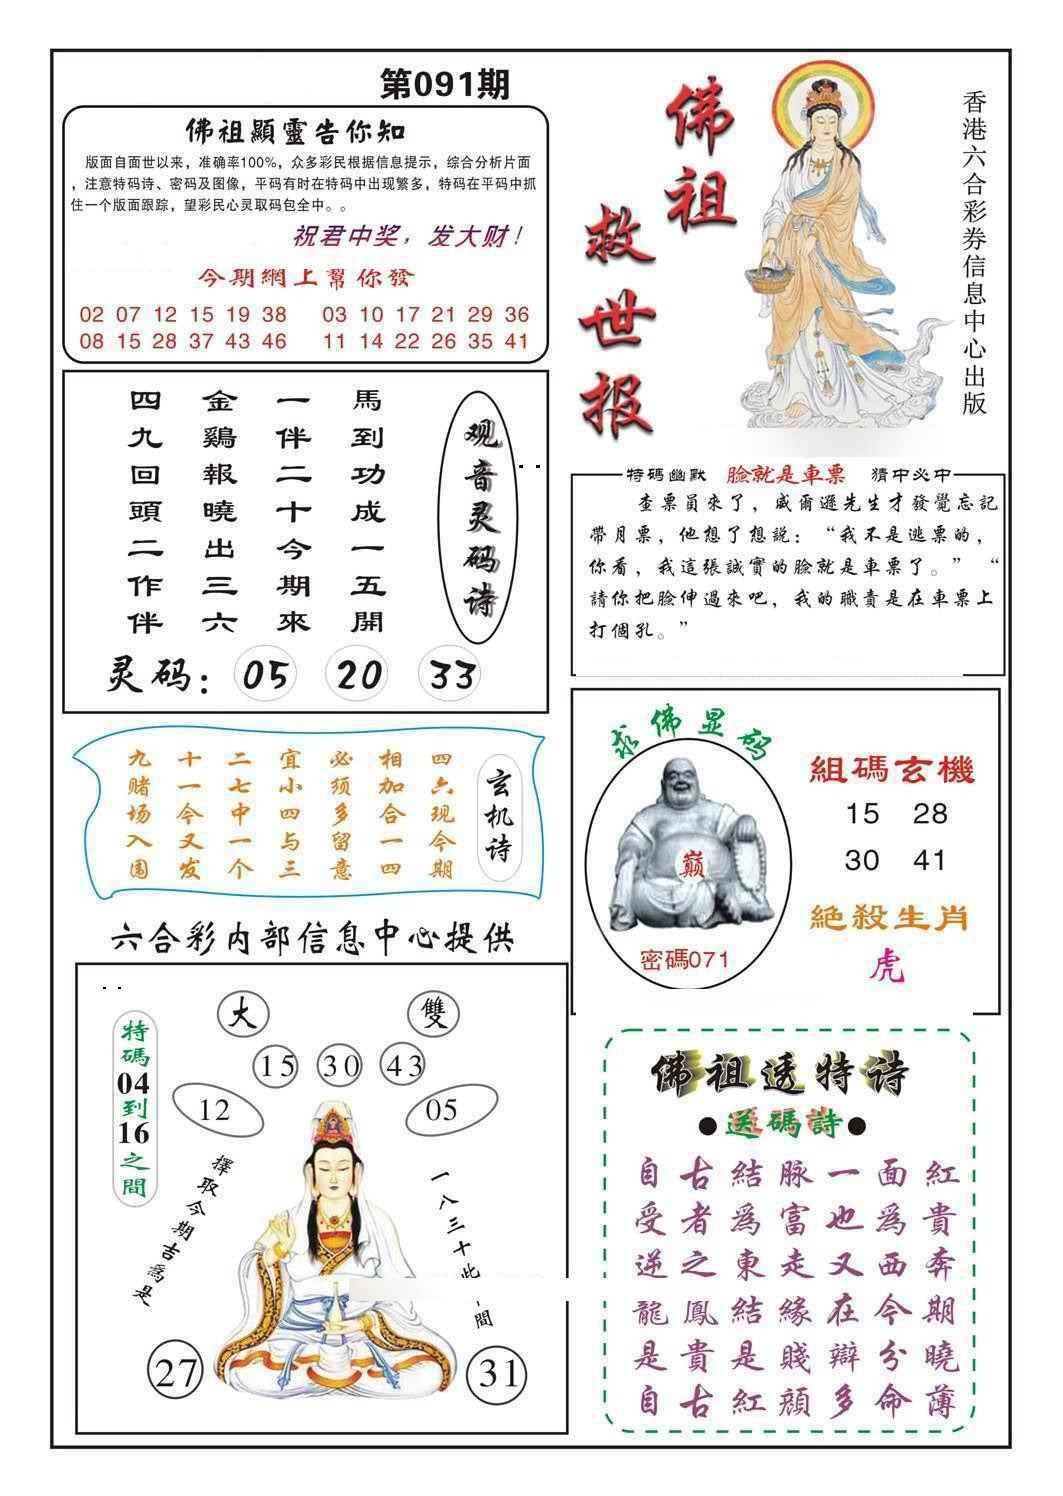 第091期
佛祖顯靈告你知
版面自面世以来，准确率100%，众多彩民根据信息提示，综合分析片面
，注意特码诗、密码及图像，平码有时在特码中出现繁多，特码在平码中抓
住一个版面跟踪，望彩民心灵取码包全中。。
祝君中奖，发大财！
今期網上幫你發
02 07 12 15 19 38 03 10 17 21 29 36
08 15 28 37 43 46 11 14 22 26 35 41
佛祖
救世报
香港六合彩券信息中心出版
观音灵码诗
馬到功成一五開
一伴二十今期來
金鷄報曉出三六
四九回頭二作伴
灵码：05 20 33
特碼幽默 臉就是車票 猜中必中
查票員來了，威爾遜先生才發覺忘記
帶月票，他想了想説：“我不是逃票的，
你看，我這張誠實的臉就是車票了。” “
請你把臉伸過來吧，我的職責是在車票上
打個孔。”
玄机诗
四六现今期
相加合一四
必须多留意
宜小四与三
二七中一个
十一今又发
九赌场入围
求佛显码
巅
密碼071
組碼玄機
15 28
30 41
絶殺生肖
虎
六合彩内部信息中心提供
特碼04到16之間
大 雙
15 30 43
12 05
擇取今期吉爲是
一八三十此間
27 31
佛祖透特诗
●送碼詩●
自古結脉一面紅
受者爲富也爲貴
逆之東走又西奔
龍鳳結緣在今期
是貴是賤辯分曉
自古紅顔多命薄